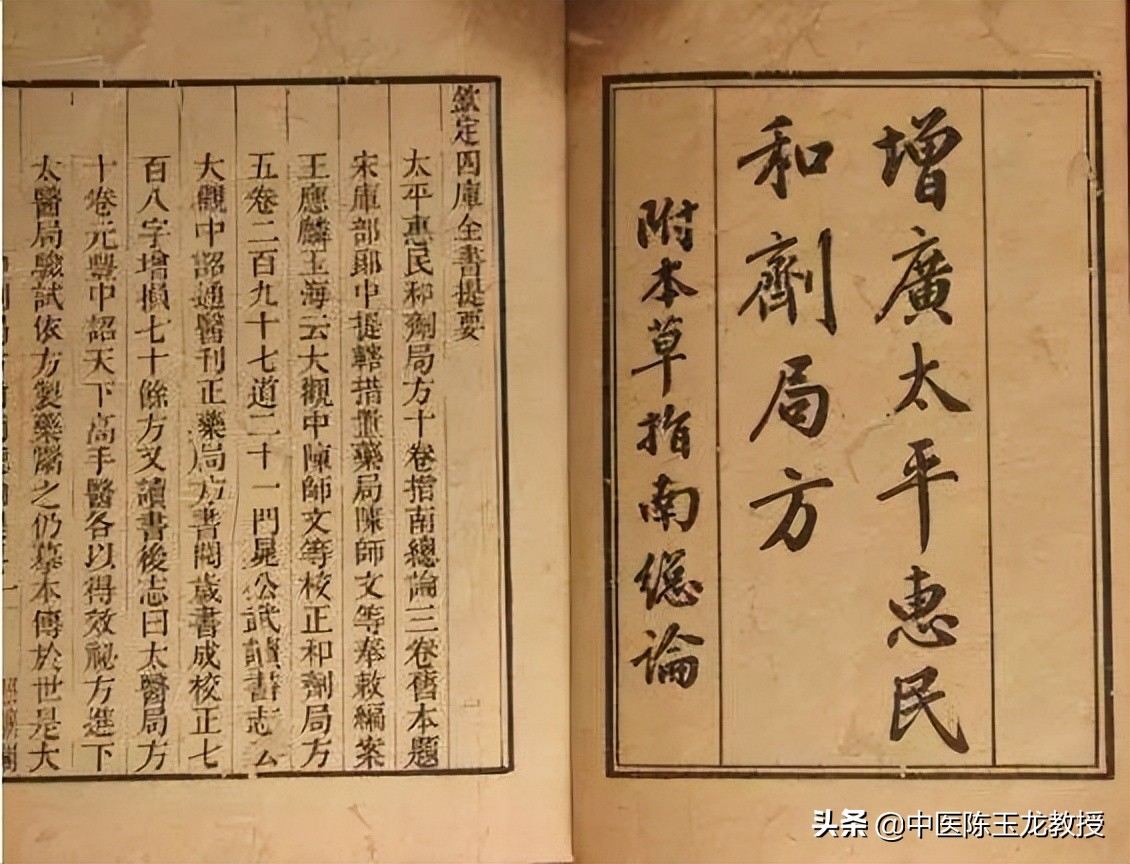 增廣太平惠民
和劑局方
附本草指南緫論
欽定四庫全書提要
太平惠民和劑局方十卷指南總論三卷舊本題
宋庫部郞中提轄措置藥局陳師文等奉敕編案
王應麟玉海云大觀中陳師文等校正和劑局方
五卷二百九十七道二十一門晁公武讀書志云
大觀中詔通醫刋正藥局方書閱歲書成校正七
百八字增損七十餘方又讀書後志曰太醫局方
十卷元豐中詔天下高手醫各以得效祕方進下
太醫局驗試依方製藥鬻之仍摹本傳於世是大
头条 @中医陈玉龙教授